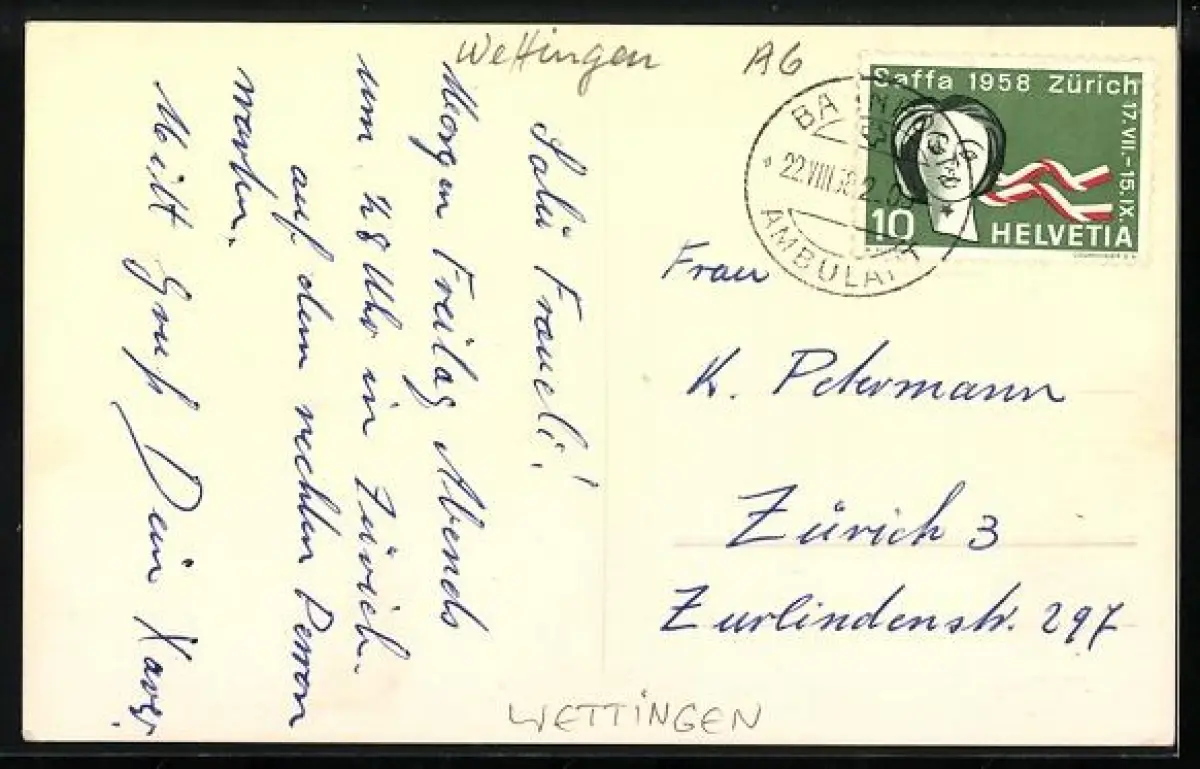 Wettingen AG
Salü Fraueli!
Morgen Freitag Abends
um 18 Uhr in Zürich.
auf dem rechten Perron
warten.
Mitt Gruß Dein Xaver.
Saffa 1958 Zürich
17.VII.–15.IX.
10 HELVETIA
22.VIII.58
AMBULANT
Frau
K. Petermann
Zürich 3
Zurlindenstr. 297
WETTINGEN